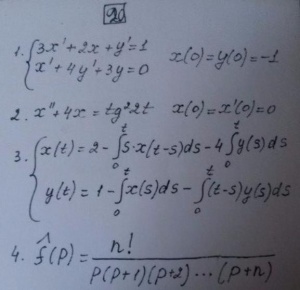 20
1. { 3x' + 2x + y' = 1
x' + 4y' + 3y = 0    x(0) = y(0) = -1
2. x'' + 4x = tg² 2t    x(0) = x'(0) = 0
3. { x(t) = 2 - ∫₀ᵗ s·x(t-s)ds - 4∫₀ᵗ y(s)ds
y(t) = 1 - ∫₀ᵗ x(s)ds - ∫₀ᵗ (t-s)y(s)ds
4. f̂(p) = n! / (p(p+1)(p+2)···(p+n))